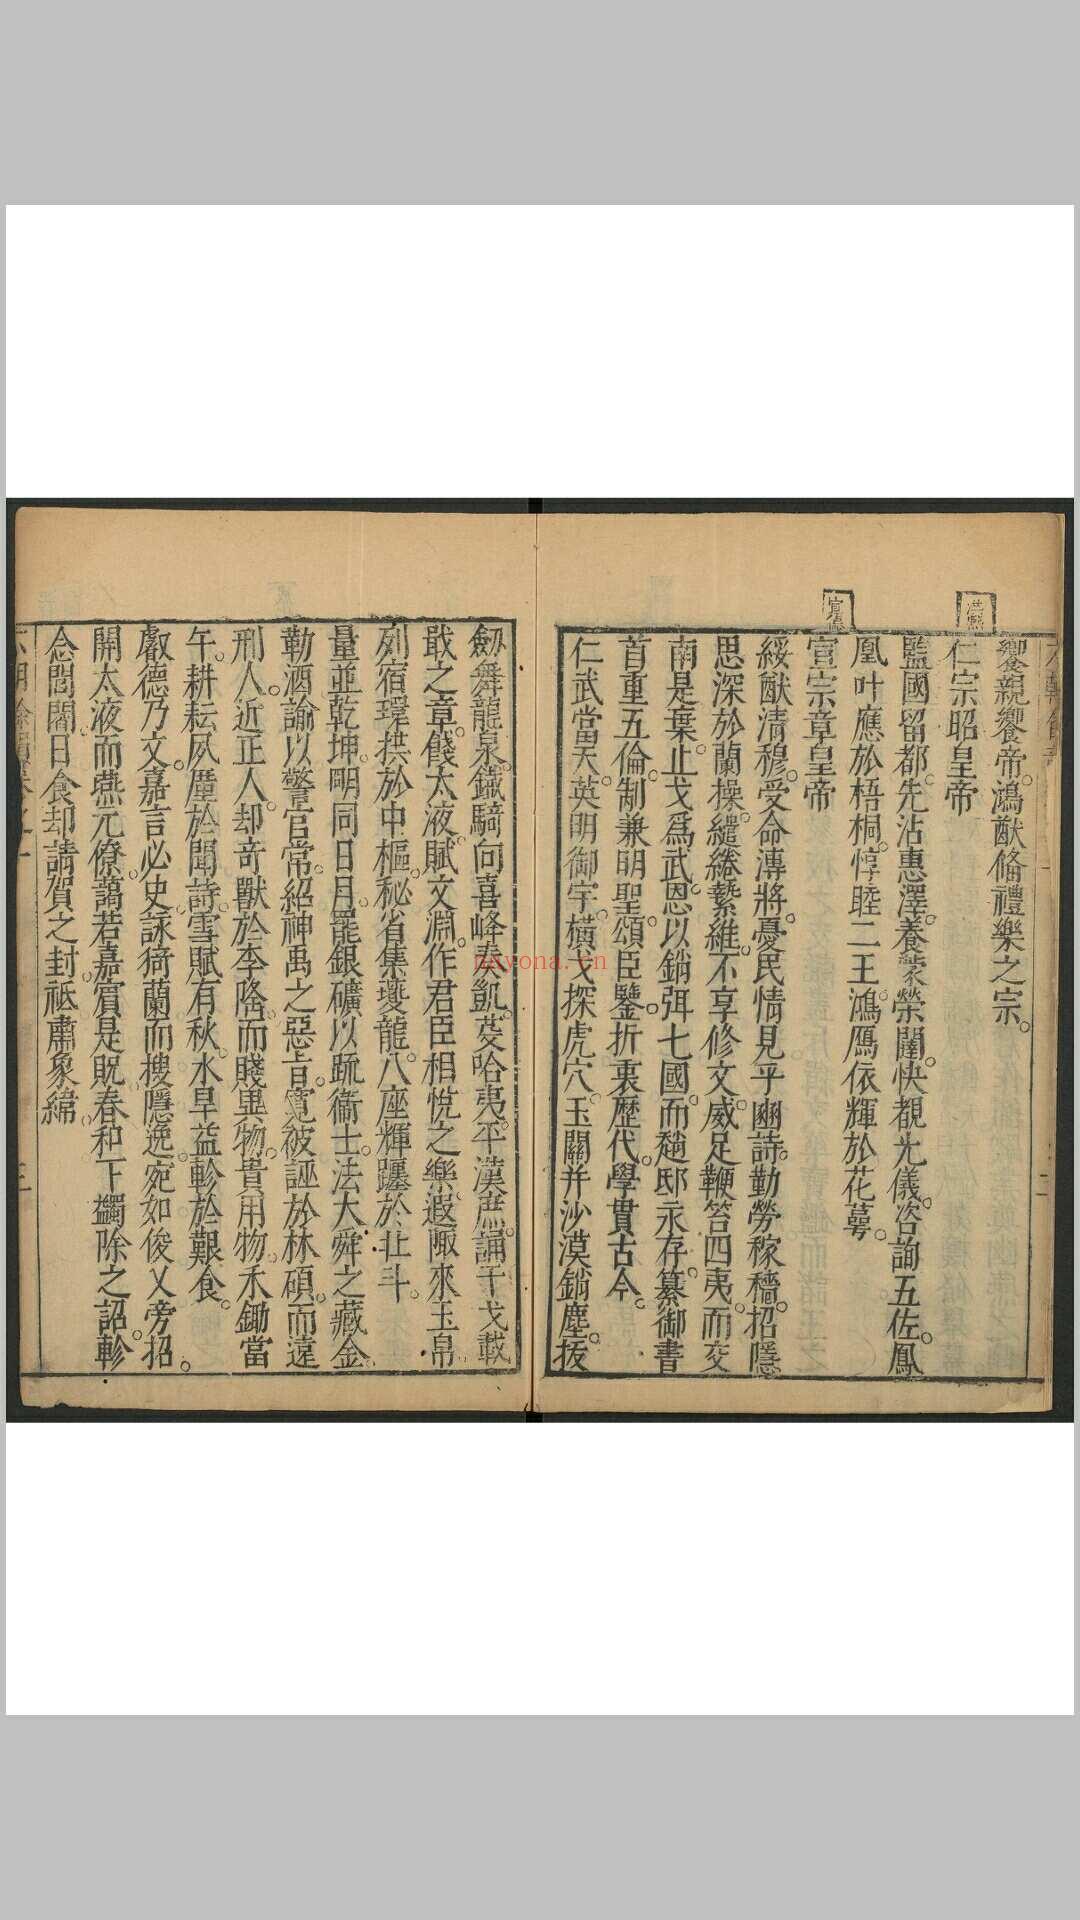 洪熙
饗親饗帝鴻猷脩禮樂之宗
仁宗昭皇帝
監國留都先沾惠澤養蒙榮闥快覩光儀咨詢五佐鳳
凰叶應於梧桐惇睦二王鴻鴈依輝於花萼
宣德
宣宗章皇帝
綏猷清穆受命溥將憂民情見乎豳詩勤勞稼穡招隱
思深於蘭操繾綣縶維不享修文威足鞭笞四夷而交
南是棄止戈爲武恩以銷弭七國而趙邸永存纂御書
首重五倫制兼明聖頌臣鑒折衷歷代學貫古今
仁武當天英明御宇橫戈探虎穴玉關并沙漠銷塵拔
劒舞龍泉鐵騎向喜峰奏凱芟哈夷平漢庶誦干戈載
戢之章餞太液賦文淵作君臣相悅之樂遐陬來玉帛
列宿環拱於中樞秘省集夔龍八座輝躔於北斗
量並乾坤明同日月罷銀礦以疏衞士法大舜之藏金
勒酒諭以警官常紹神禹之惡旨寬被誣於林碩而遠
刑人近正人却奇獸於李隆而賤異物貴用物禾鋤當
午耕耘夙廑於閔詩雪賦有秋水旱益軫於艱食
叡德乃文嘉言必史詠猗蘭而搜隱逸宛如俊乂旁招
開太液而燕元僚藹若嘉賓是貺春和下蠲除之詔軫
念閭閻日食却請賀之封祗肅象緯
nayona.cn